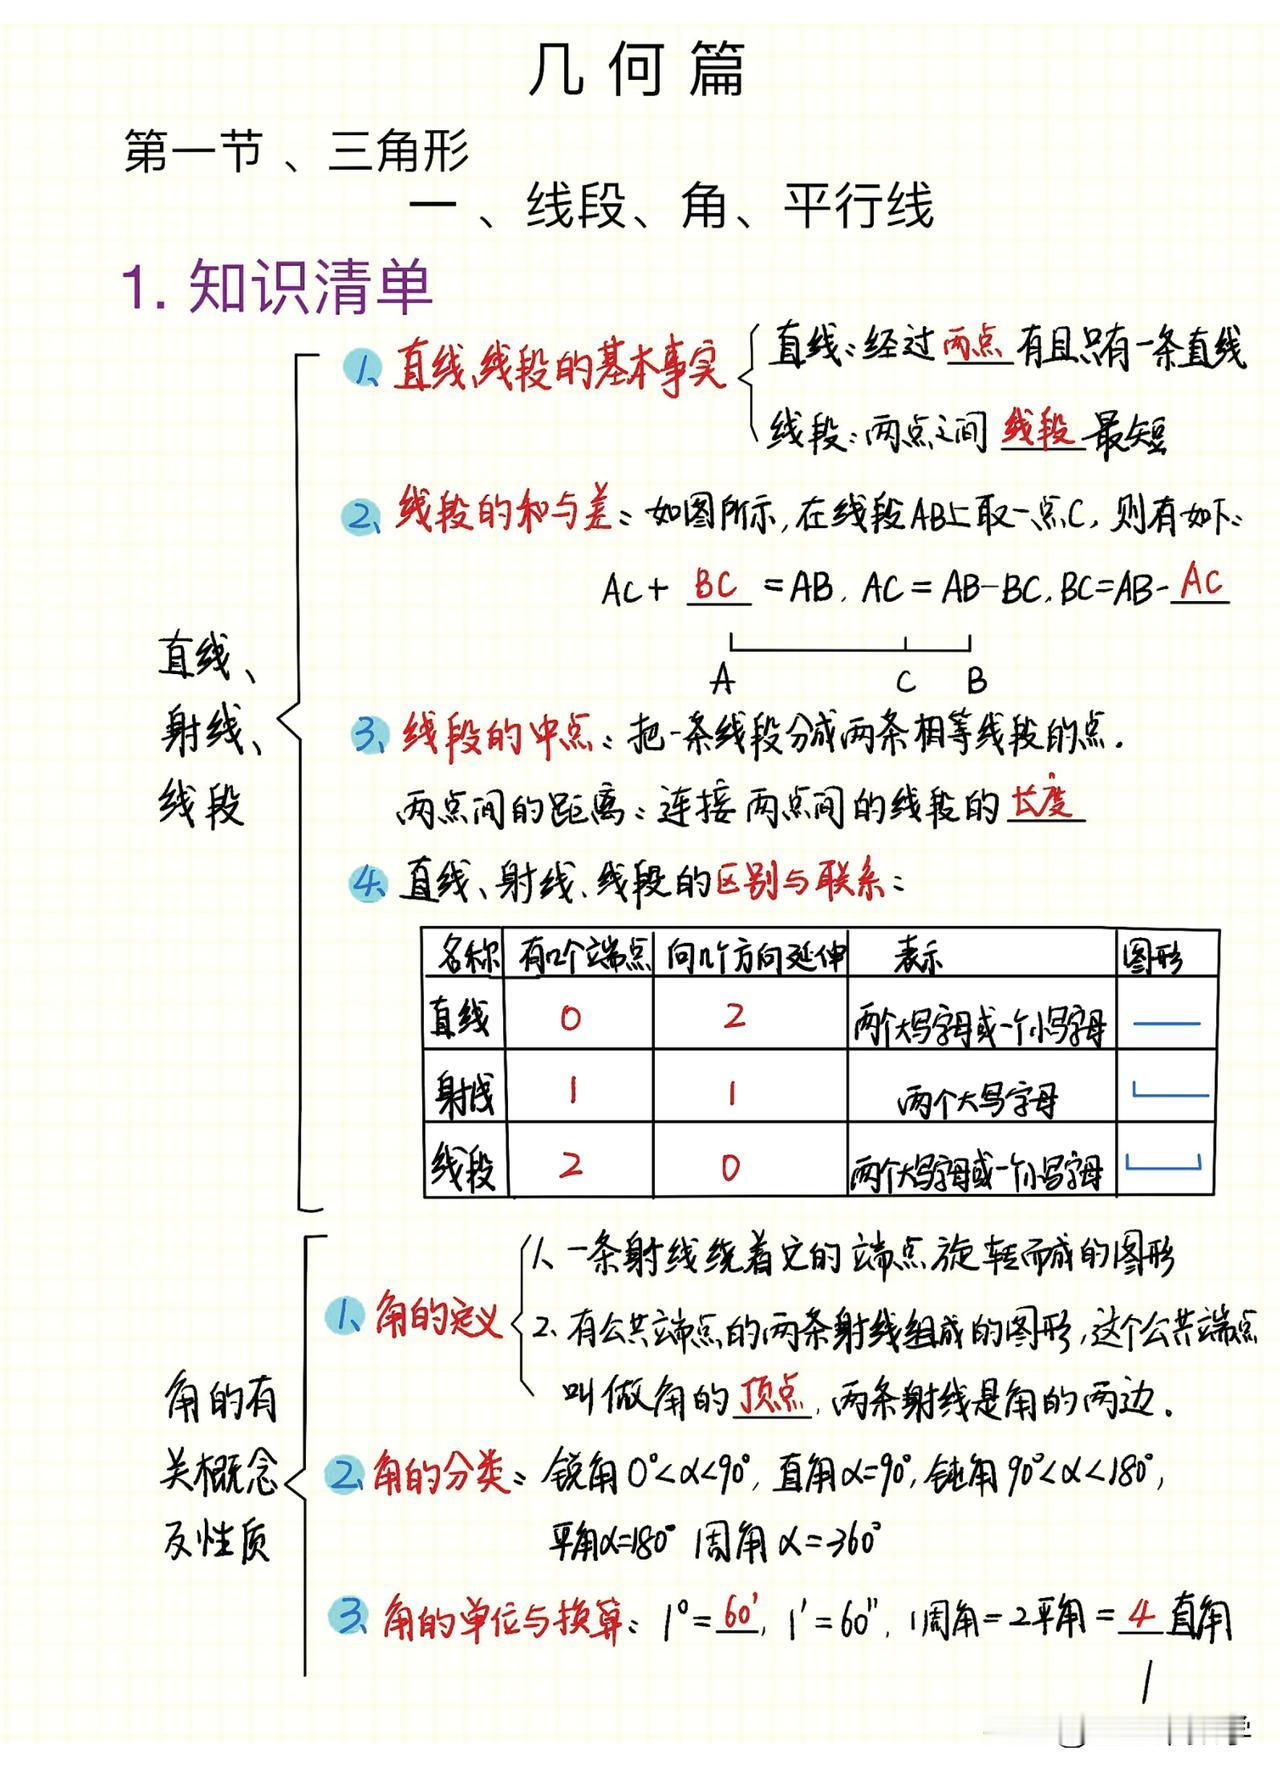 几何篇
第一节、三角形
一、线段、角、平行线
1. 知识清单
直线、
射线、
线段
1、直线、线段的基本事实
直线:经过两点有且只有一条直线
线段:两点之间线段最短
2、线段的和与差:如图所示,在线段AB上取一点C,则有如下:
AC+BC=AB, AC=AB-BC, BC=AB-AC
A C B
3、线段的中点:把一条线段分成两条相等线段的点.
两点间的距离:连接两点间的线段的长度
4、直线、射线、线段的区别与联系:
名称 有几个端点 向几个方向延伸 表示 图形
直线 0 2 两个大写字母或一个小写字母
射线 1 1 两个大写字母
线段 2 0 两个大写字母或一个小写字母
角的有
关概念
及性质
1、角的定义
1、一条射线绕着它的端点旋转而成的图形
2、有公共端点的两条射线组成的图形,这个公共端点
叫做角的顶点,两条射线是角的两边.
2、角的分类:锐角0°<α<90°,直角α=90°,钝角90°<α<180°,
平角α=180° 周角α=360°
3、角的单位与换算:1°=60′, 1′=60″, 1周角=2平角=4直角
1